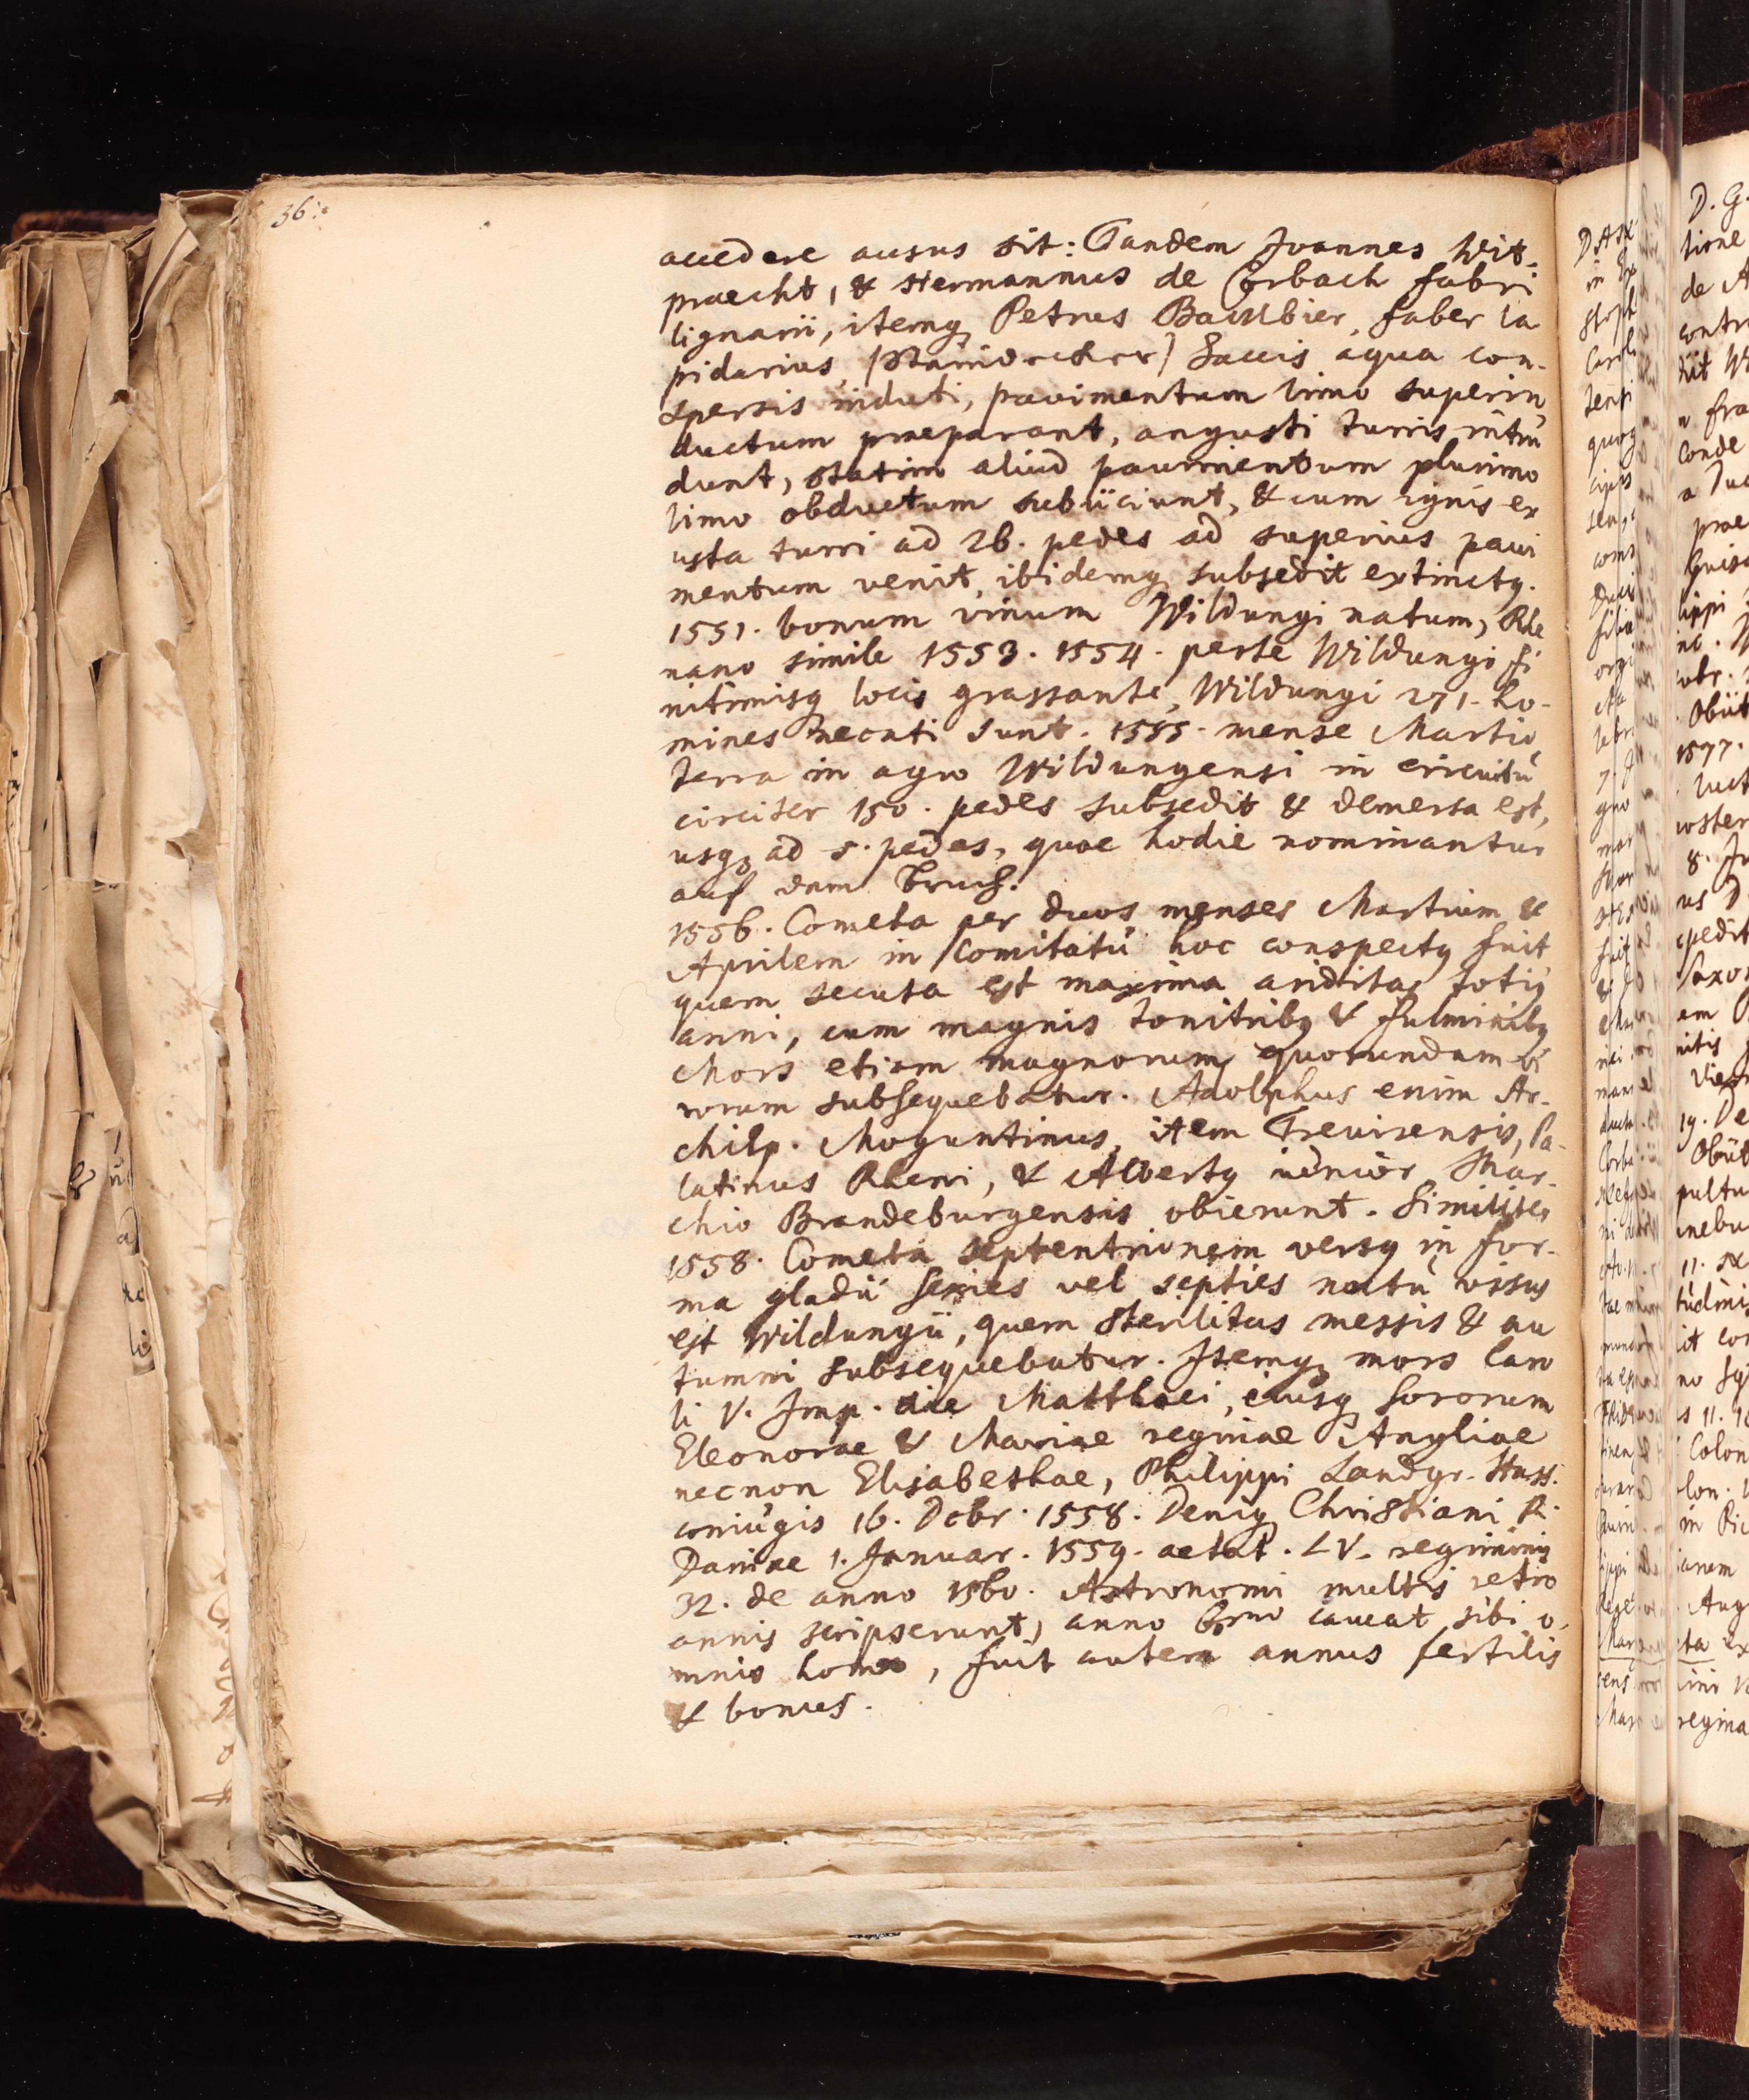 36.
accedere ausus sit: Tandem Joannes Wit-
praecht, & Hermannus de Corbach fabri
lignarii, itemq₃ Petrus faber la
pidarius, saccis aqua con-
spersis induti, pavimentum limo superin
ductum praeparant, angusti turris intru
dunt, statim aliud pavimentum plurimo
limo obductum subiiciunt, & cum ignis ex
usta turri ad 26. pedes ad superius pavi
mentum venit, ibidemq₃ subsedit extinctq.
1551. bonum vinum Wildungi natum, Rhe
nano simile 1553. 1554. peste Wildungi fi
nitimisq locis grassante, Wildungi 271. ho-
mines necati sunt. 1555. mense Martio
terra in agro Wildungensi in circuitu
circiter 150. pedes subsedit & demersa est,
usq₃ ad 5. pedes, quae hodie nominantur
auf dem Bruch.
1556. Cometa per duos menses Martium &
Aprilem in Comitatu hoc conspectq fuit
quem secuta est maxima ariditas totiq
anni, cum magnis tonitribq & fulminibq
Mors etiam magnorum quorundam vi
rorum subsequebatur. Adolphus enim Ar-
chiEp. Moguntinus, item Trevirensis, Pa-
latinus Rheni, & Albertq iunior Mar-
chio Brandeburgensis obierunt. Similiter
1558. Cometa septentrionem versq in for-
ma gladii sexies vel septies noctu visus
est Wildungii, quem sterilitas messis & au
tumni subsequebatur. Itemq₃ mors Caro
li V. Imp. die Matthaei, eiusq sororum
Eleonorae & Mariae reginae Angliae
necnon Elisabethae, Philippi Landgr. Hass.
coniugis 16. Dcbr. 1558. Deniq Christiani R.
Daniae 1. Januar. 1559. aetat. LV. regiminis
32. de anno 1560. Astronomi multis retro
annis scripserunt, anno caveat sibi o-
mnis homo, fuit autem annus fertilis
& bonus.